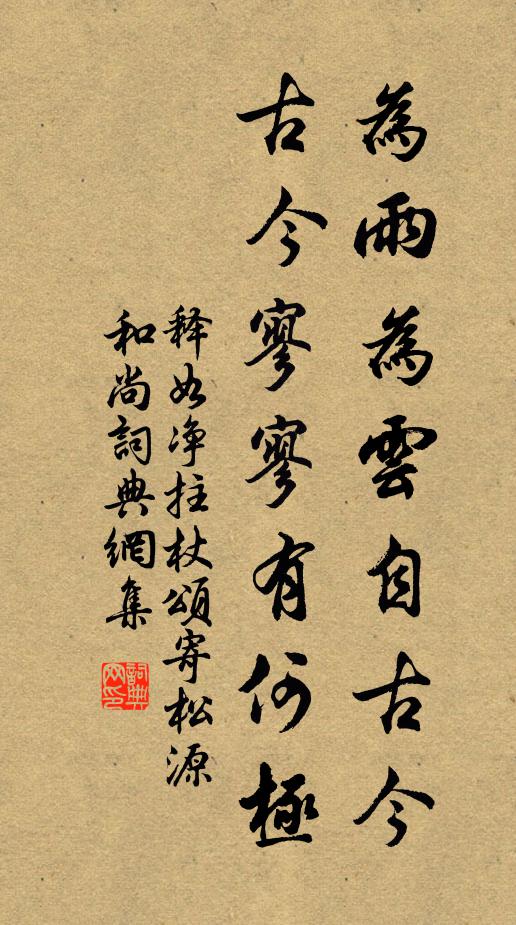 為雨為雲自古今
古今寥寥有何極
釋如净拄杖頌寄松源
和尚詞典網集
詞典网印